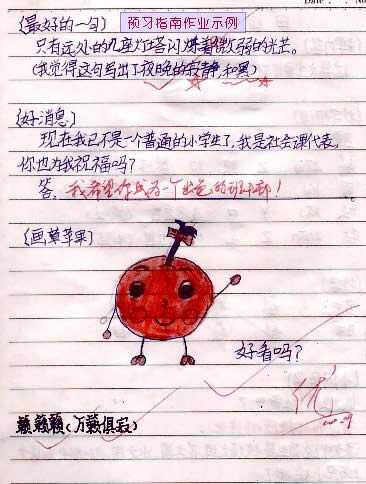 预习指南作业示例
(最好的一句)
只有远处的几座灯塔闪烁着微弱的光芒。
(我觉得这句写出了夜晚的寂静,和黑)
(好消息)
现在我已不是一个普通的小学生了,我是社会课代表,
你也为我祝福吗?
答,我希望你成为一个出色的班干部!
(画草苹果)
好看吗?
优
籁籁籁(万籁俱寂)